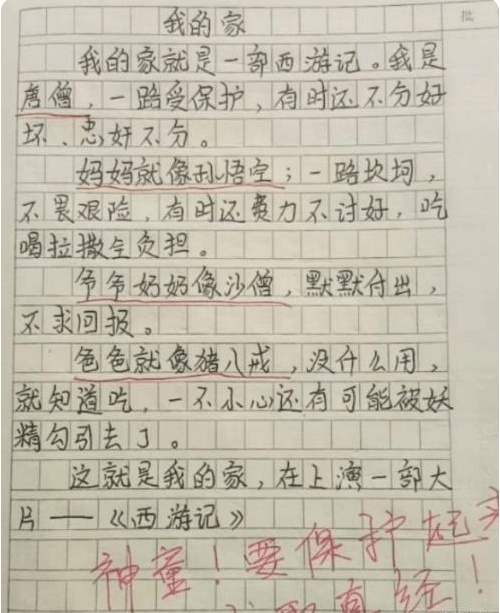 我的家
我的家就是一部西游记。我是
唐僧，一路受保护，有时还不分好
坏、忠奸不分。
妈妈就像孙悟空；一路坎坷，
不畏艰险，有时还费力不讨好，吃
喝拉撒全负担。
爷爷奶奶像沙僧，默默付出，
不求回报。
爸爸就像猪八戒，没什么用，
就知道吃，一不小心还有可能被妖
精勾引去了。
这就是我的家，在上演一部大
片——《西游记》
神童！要保护起来
真经！